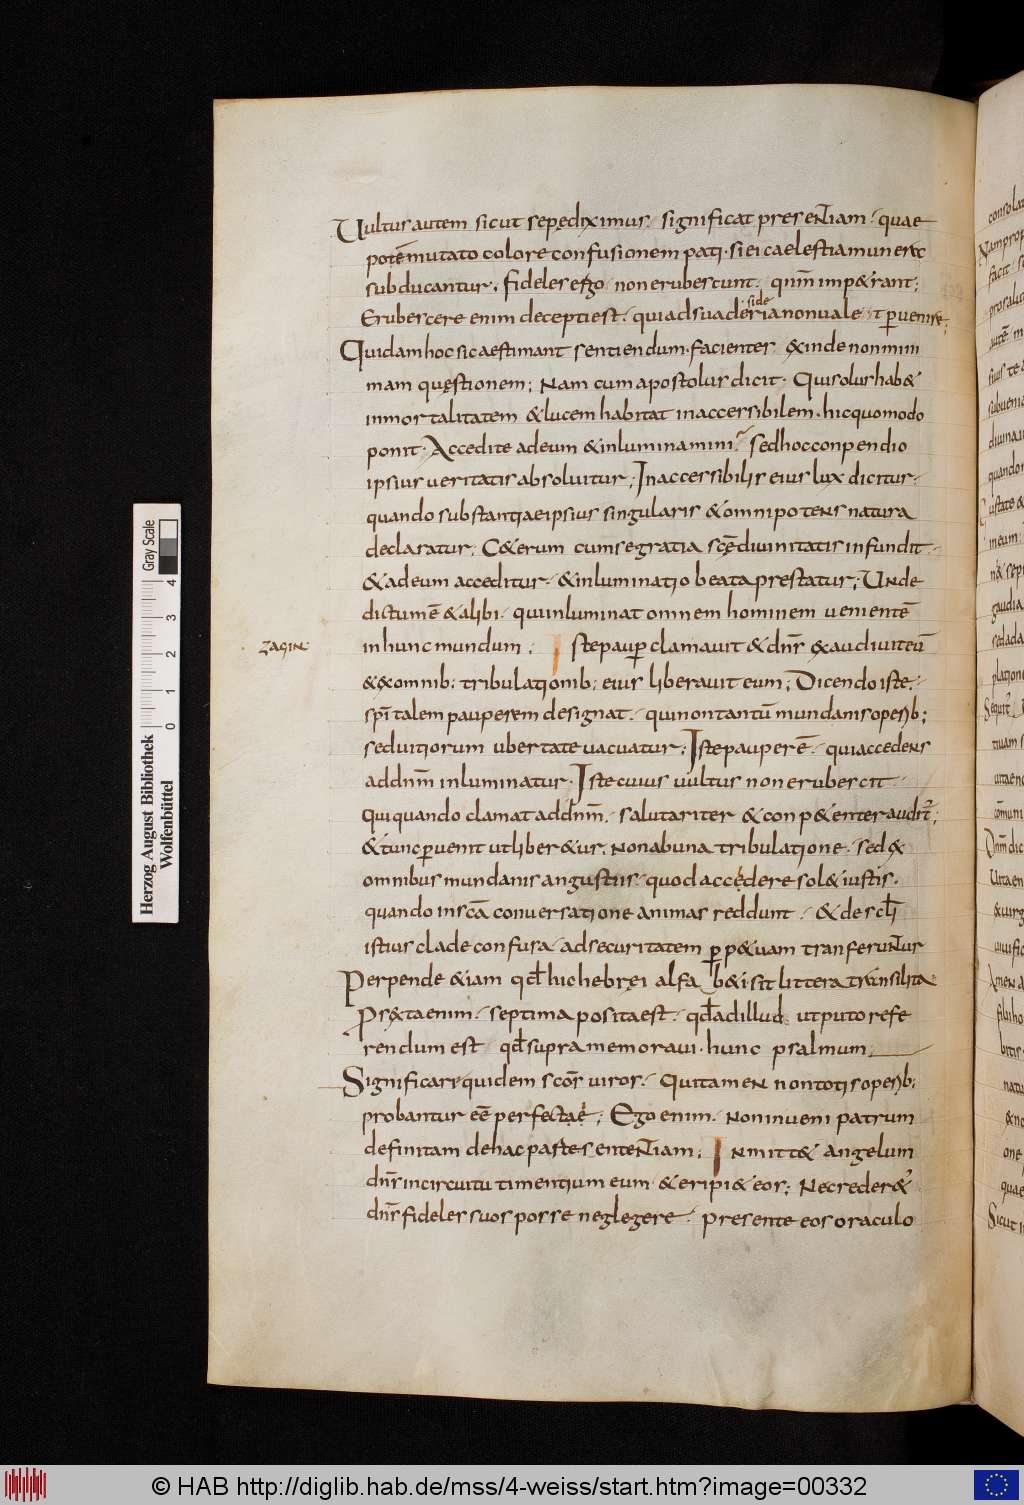 Vultus autem sicut sepe diximus. significat presentiam. quae
potē mutato colore confusionem pati. si ei caelestia munera
subducantur. fideles ergo non erubescunt. qnm imp&rant;
Erubescere enim decepti est. qui ad suadenonuale
side
t puenire;
Quidam hoc sic aestimant sentiendum. facientes exinde nonmini
mam questionem; Nam cum apostolus dicit. Qui solus hab&
inmortalitatem & lucem habitat inaccessibilem. hic quomodo
ponit. Accedite ad eum & inluminamini? sed hoc conpendio
ipsius ueritatis absoluitur; Inaccessibilis eius lux dicitur.
quando substantiae ipsius singularis & omnipotens natura
declaratur; C&erum cum se gratia scę diuinitatis infundit.
& ad eum acceditur. & inluminatio beata prestatur; Unde
dictum ē & alibi. qui inluminat omnem hominem uenientē
zain
in hunc mundum; Iste paup clamauit & dns exaudiuit eū
& ex omnib; tribulationib; eius liberauit eum; Dicendo iste.
spitalem pauperem designat. qui non tantū mundanis opesb;
sed uitiorum ubertate uacuatur; Iste pauper ē. qui accedens
ad dnm inluminatur. Iste cuius uultus non erubescit.
Qui quando clamat ad dnm. salutariter & conp&enter auditur;
& tunc puenit ut liber&ur; non ab una tribulatione. sed ex
omnibus mundanis angustiis. quod accedere sol& iustis.
quando in scā conuersatione animas reddunt. & de scli
istius clade confusa. ad securitatem pp&uam transferuntur
Perpende &iam qd hic hebrei alfab&i sit littera transilita
Prętaenim. septima posita est. qd ad illud ut puto refe
rendum est qd supra memoraui. hunc psalmum
Significare quidem scos uiros. Qui tamen non totis opesb;
probantur eē perfectae; Ego enim. non inueni patrum
definitam de hac parte sententiam; Inmitt& angelum
dns in circuitu timentium eum & eripi& eos; Ne creder&
dns fideles suos posse neglegere. presente eos oraculo
consola
Nam prop
facit
pro salu
autē m
fius te
subueni
diuina
quando
Gustate &
meum
n& sepi
gaudia
sed ada
plation
Sequitr
tuam s
uitaen
cōmuni
Dnm dic
Uita en
& uirg
uiuific
Amen
filii ho
bitis
natu
& no
one
quae
Sicut i
Herzog August Bibliothek
Wolfenbüttel
0 1 2 3 4
Gray Scale
© HAB http://diglib.hab.de/mss/4-weiss/start.htm?image=00332